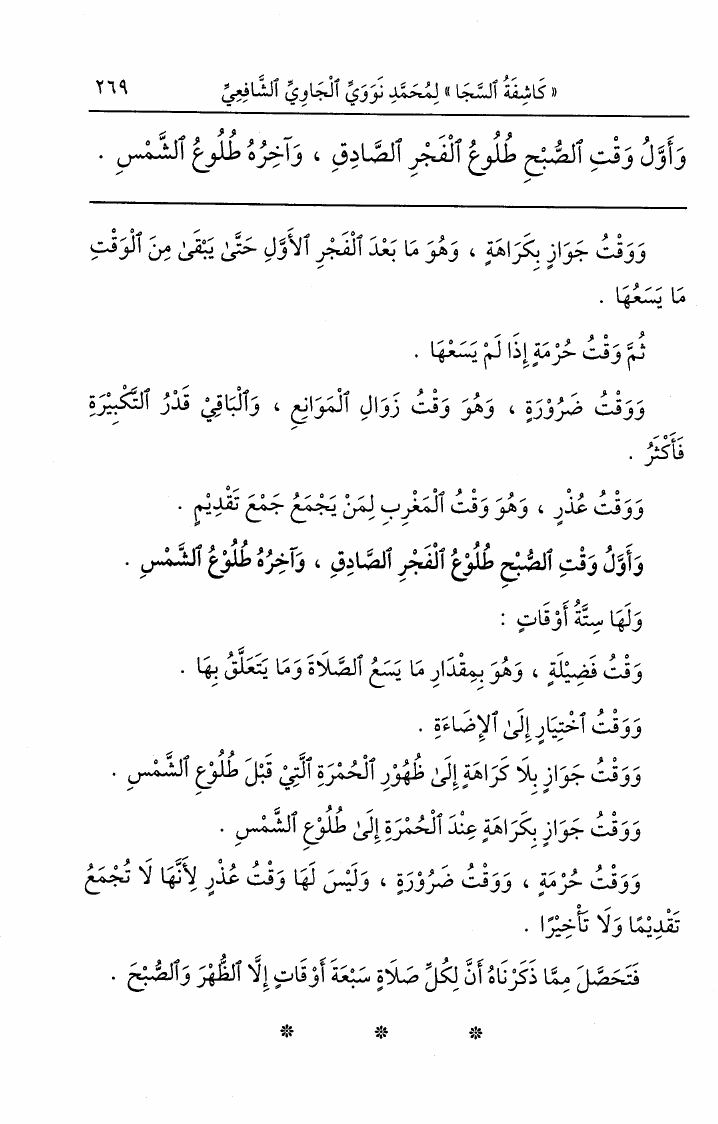 « كَاشِفَةُ ٱلسَّجَا » لِمُحَمَّدِ نَوَوَيِّ ٱلْجَاوِيِّ ٱلشَّافِعِيِّ ٢٦٩
وَأَوَّلُ وَقْتِ ٱلصُّبْحِ طُلُوعُ ٱلْفَجْرِ ٱلصَّادِقِ ، وَآخِرُهُ طُلُوعُ ٱلشَّمْسِ .
وَوَقْتُ جَوَازٍ بِكَرَاهَةٍ ، وَهُوَ مَا بَعْدَ ٱلْفَجْرِ ٱلأَوَّلِ حَتَّىٰ يَبْقَىٰ مِنَ ٱلْوَقْتِ
مَا يَسَعُهَا .
ثُمَّ وَقْتُ حُرْمَةٍ إِذَا لَمْ يَسَعْهَا .
وَوَقْتُ ضَرُوْرَةٍ ، وَهُوَ وَقْتُ زَوَالِ ٱلْمَوَانِعِ ، وَٱلْبَاقِيْ قَدْرُ ٱلتَّكْبِيْرَةِ
فَأَكْثَرُ .
وَوَقْتُ عُذْرٍ ، وَهُوَ وَقْتُ ٱلْمَغْرِبِ لِمَنْ يَجْمَعُ جَمْعَ تَقْدِيْمٍ .
وَأَوَّلُ وَقْتِ ٱلصُّبْحِ طُلُوْعُ ٱلْفَجْرِ ٱلصَّادِقِ ، وَآخِرُهُ طُلُوْعُ ٱلشَّمْسِ .
وَلَهَا سِتَّةُ أَوْقَاتٍ :
وَقْتُ فَضِيْلَةٍ ، وَهُوَ بِمِقْدَارِ مَا يَسَعُ ٱلصَّلَاةَ وَمَا يَتَعَلَّقُ بِهَا .
وَوَقْتُ ٱخْتِيَارٍ إِلَىٰ ٱلإِضَاءَةِ .
وَوَقْتُ جَوَازٍ بِلَا كَرَاهَةٍ إِلَىٰ ظُهُوْرِ ٱلْحُمْرَةِ ٱلَّتِيْ قَبْلَ طُلُوْعِ ٱلشَّمْسِ .
وَوَقْتُ جَوَازٍ بِكَرَاهَةٍ عِنْدَ ٱلْحُمْرَةِ إِلَىٰ طُلُوْعِ ٱلشَّمْسِ .
وَوَقْتُ حُرْمَةٍ ، وَوَقْتُ ضَرُوْرَةٍ ، وَلَيْسَ لَهَا وَقْتُ عُذْرٍ لِأَنَّهَا لَا تُجْمَعُ
تَقْدِيْمًا وَلَا تَأْخِيْرًا .
فَتَحَصَّلَ مِمَّا ذَكَرْنَاهُ أَنَّ لِكُلِّ صَلَاةٍ سَبْعَةَ أَوْقَاتٍ إِلَّا ٱلظُّهْرَ وَٱلصُّبْحَ .
* * *